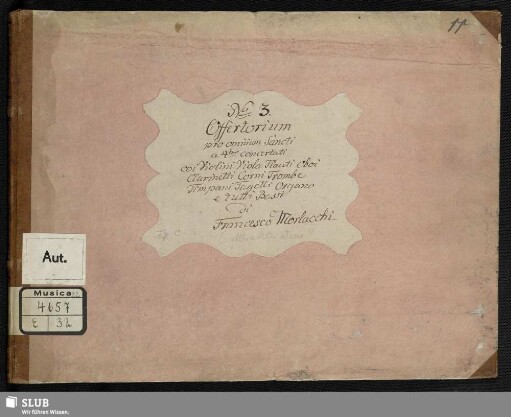 11
No. 3.
Offertorium
pro omnium Sancti
a 4tro concertati
coi Violini Viola Flauti Oboi
Clarinetti Corni Trombe
Timpani Fagotti Organo
e tutti Bassi
di
Francesco Morlacchi
Aut.
Musica
4657
E 32
SLUB
Wir führen Wissen.